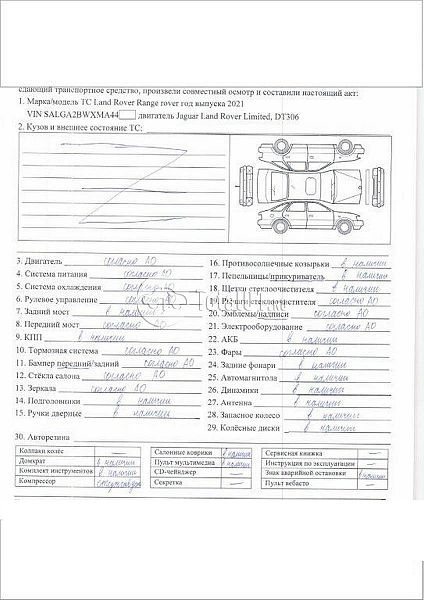 сдающий транспортное средство, произвели совместный осмотр и составили настоящий акт:
1. Марка/модель ТС Land Rover Range rover год выпуска 2021
VIN SALGA2BWXMA44 двигатель Jaguar Land Rover Limited, DT306
2. Кузов и внешнее состояние ТС:
3. Двигатель согласно АО
4. Система питания согласно АО
5. Система охлаждения согласно АО
6. Рулевое управление согласно АО
7. Задний мост в наличии
8. Передний мост согласно АО
9. КПП в наличии
10. Тормозная система согласно АО
11. Бампер передний/задний согласно АО
12. Стёкла салона согласно АО
13. Зеркала согласно АО
14. Подголовники в наличии
15. Ручки дверные в наличии
16. Противосолнечные козырьки в наличии
17. Пепельницы/прикуриватель в наличии
18. Щетки стеклоочистителя в наличии
19. Рычаги стеклоочистителя согласно АО
20. Эмблемы/надписи согласно АО
21. Электрооборудование согласно АО
22. АКБ в наличии
23. Фары согласно АО
24. Задние фонари в наличии
25. Автомагнитола в наличии
26. Динамики в наличии
27. Антенна в наличии
28. Запасное колесо в наличии
29. Колёсные диски в наличии
30. Авторезина
Колпаки колёс —
Домкрат в наличии
Комплект инструментов в наличии
Компрессор отсутствует
Салонные коврики в наличии
Пульт мультимедиа в наличии
CD-чейнджер —
Секретка —
Сервисная книжка —
Инструкция по эксплуатации —
Знак аварийной остановки в наличии
Пульт вебасто —